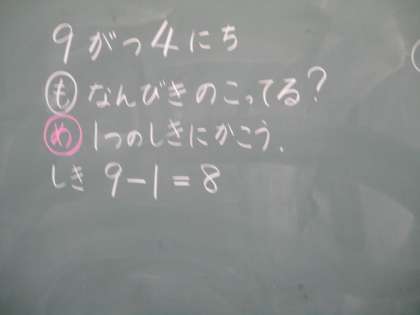 9がつ4にち
も なんびきのこってる?
め 1つのしきにかこう.
しき 9-1=8